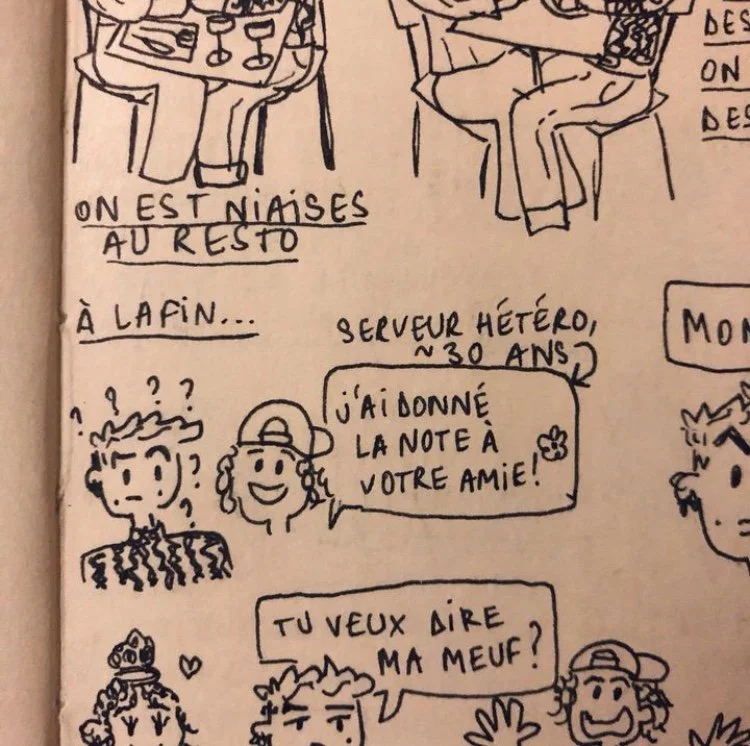 DES
ON
DES
ON EST NIAISES
AU RESTO
À LA FIN...
SERVEUR HÉTÉRO,
~30 ANS
J'AI DONNÉ
LA NOTE À
VOTRE AMIE!
MON
? ? ? ? ? ? ?
TU VEUX DIRE
MA MEUF?